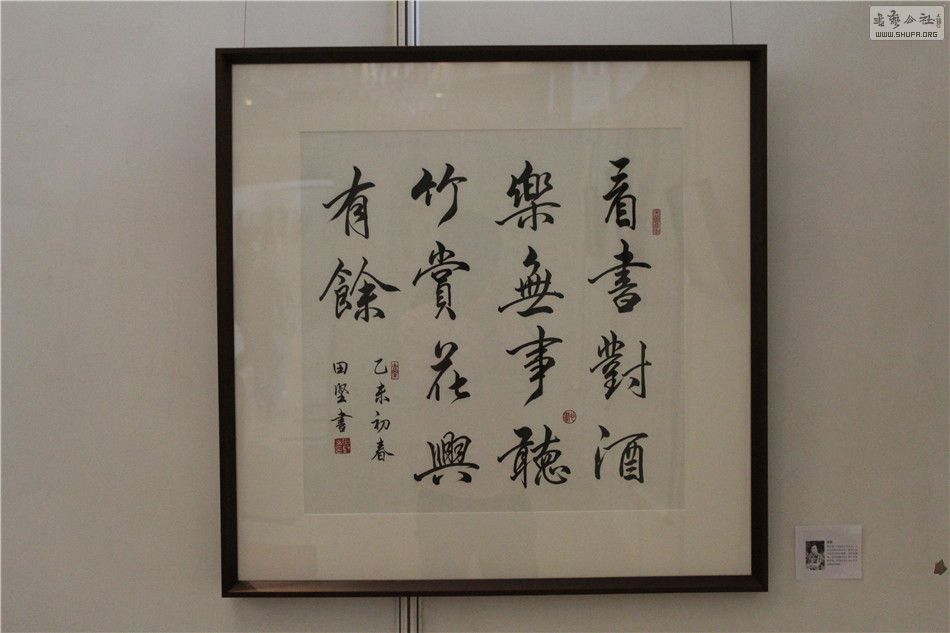 看書對酒
樂無事聽
竹賞花興
有餘
乙未初春
田堅書
書藝公社
WWW.SHUFA.ORG